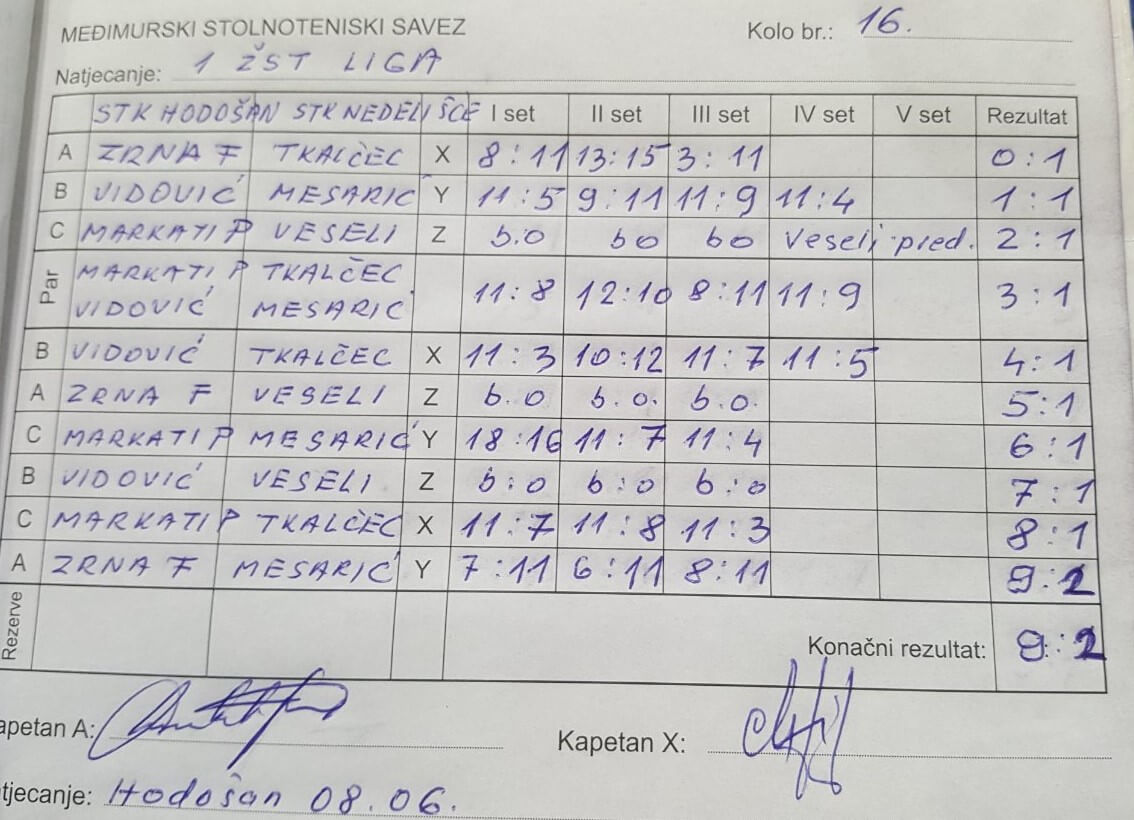 MEĐIMURSKI STOLNOTENISKI SAVEZ Kolo br.: 16.
Natjecanje: 1 ŽST LIGA
STK HODOŠAN STK NEDELIŠĆE I set II set III set IV set V set Rezultat
A ZRNA F TKALČEC X 8:11 13:15 3:11 0:1
B VIDOVIĆ MESARIĆ Y 11:5 9:11 11:9 11:4 1:1
C MARKATI P VESELI Z b.o bo bo Veseli pred. 2:1
Par MARKATI P TKALČEC
VIDOVIĆ MESARIĆ 11:8 12:10 8:11 11:9 3:1
B VIDOVIĆ TKALČEC X 11:3 10:12 11:7 11:5 4:1
A ZRNA F VESELI Z b.o b.o. b.o. 5:1
C MARKATI P MESARIĆ Y 18:16 11:7 11:4 6:1
B VIDOVIĆ VESELI Z b:o b:o b:o 7:1
C MARKATI P TKALČEC X 11:7 11:8 11:3 8:1
A ZRNA F MESARIĆ Y 7:11 6:11 8:11 9:2
Rezerve Konačni rezultat: 9:2
apetan A: Kapetan X:
tjecanje: Hodošan 08.06.